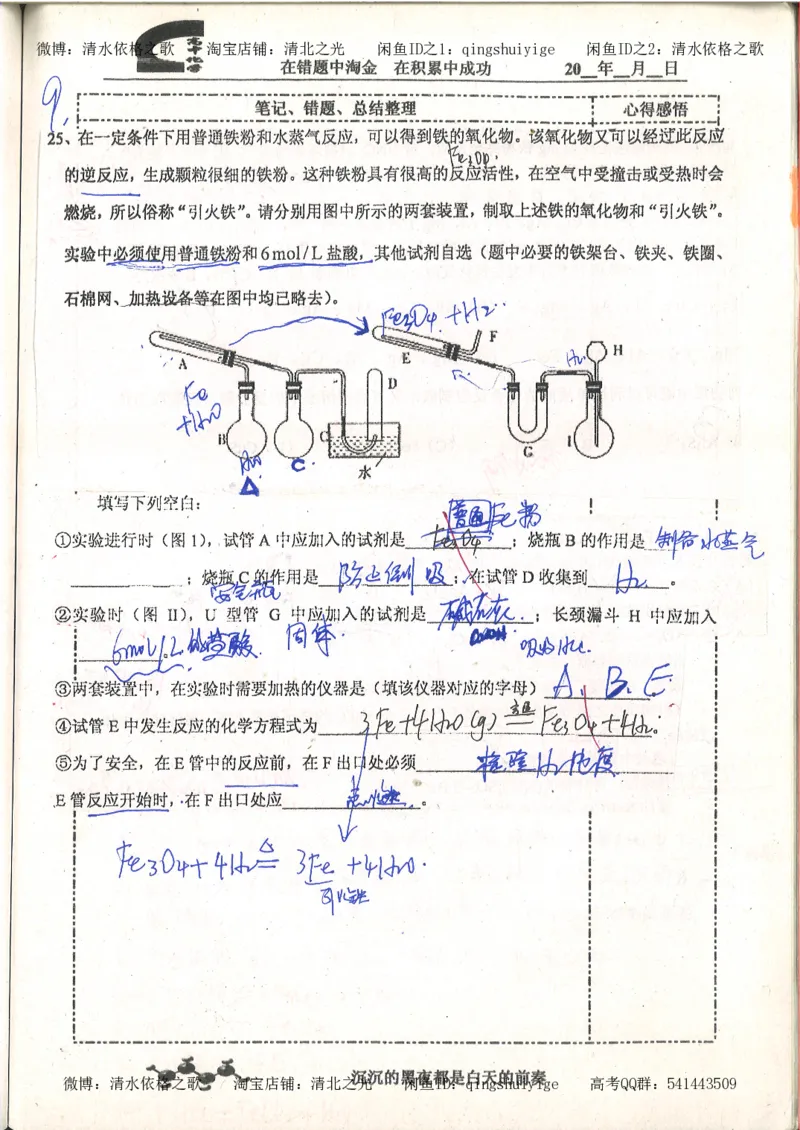 微博：清水依格之歌 淘宝店铺：清北之光 闲鱼ID之1：qingshuiyige 闲鱼ID之2：清水依格之歌
在错题中淘金 在积累中成功 20__年__月__日
9.
笔记、错题、总结整理 心得感悟
25、在一定条件下用普通铁粉和水蒸气反应，可以得到铁的氧化物。该氧化物又可以经过此反应
Fe3O4.
的逆反应，生成颗粒很细的铁粉。这种铁粉具有很高的反应活性，在空气中受撞击或受热时会
燃烧，所以俗称“引火铁”。请分别用图中所示的两套装置，制取上述铁的氧化物和“引火铁”。
实验中必须使用普通铁粉和6mol/L盐酸，其他试剂自选（题中必要的铁架台、铁夹、铁圈、
石棉网、加热设备等在图中均已略去）。
Fe3O4 +H2
F
A
E
H2
H
D
Fe
+H2O
B
C
C
G
I
H2O
△
水
填写下列空白：
普通Fe粉
①实验进行时（图1），试管A中应加入的试剂是 Fe3O4 ；烧瓶B的作用是 制备水蒸气
；烧瓶C的作用是 防止倒吸 ；在试管D收集到 H2 。
安全瓶
②实验时（图 II），U 型管 G 中应加入的试剂是 碱石灰 ；长颈漏斗 H 中应加入
6mol/L的盐酸. 固体. 吸收HCl.
③两套装置中，在实验时需要加热的仪器是（填该仪器对应的字母） A、B、E
④试管E中发生反应的化学方程式为 3Fe+4H2O(g) 高温== Fe3O4+4H2.
⑤为了安全，在E管中的反应前，在F出口处必须 检验H2纯度
E管反应开始时，在F出口处应 点燃 。
Fe3O4+4H2 △== 3Fe +4H2O.
引火铁
沉沉的黑夜都是白天的前奏
微博：清水依格之歌 淘宝店铺：清北之光 闲鱼ID：qingshuiyige 高考QQ群：541443509